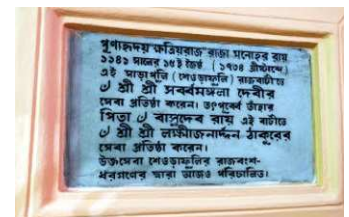 পুণ্যহৃদয় ক্ষত্রিয়রাজ রাজা মনোহর রায়
১১৪১ সালের ১৫ই জ্যৈষ্ঠ (১৭৩৪ খ্রীষ্টাব্দে)
এই সাড়াপুলি (শেওড়াফুলি) রাজবাটীতে
৺ শ্রী শ্রী সর্ব্বমঙ্গলা দেবীর
সেবা প্রতিষ্ঠা করেন। তৎপূর্ব্বে তাঁহার
পিতা ৺ বাসুদেব রায় এই বাটীতে
৺ শ্রী শ্রী লক্ষ্মীজনার্দ্দন ঠাকুরের
সেবা প্রতিষ্ঠা করেন।
উক্তসেবা শেওড়াফুলির রাজবংশ-
ধরগণের দ্বারা আজও পরিচালিত।